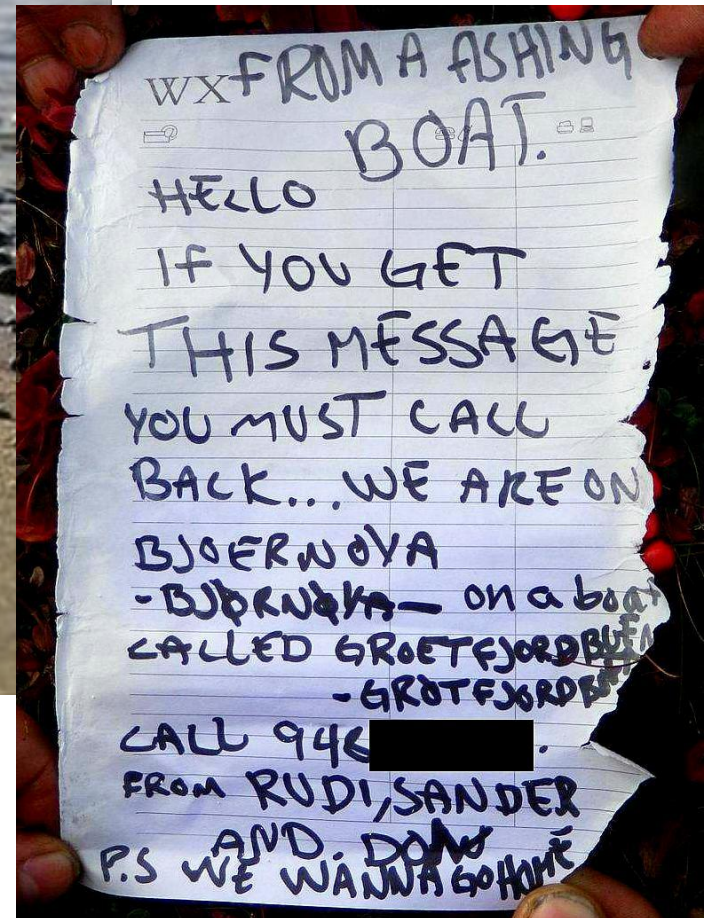 WX FROM A FISHING
BOAT.
HELLO
IF YOU GET
THIS MESSAGE
YOU MUST CALL
BACK... WE ARE ON
BJOERNOYA
-BJØRNØYA- on a boat
CALLED GROETFJORDBUEN
-GRØTFJORDB
CALL 946 .
FROM RUDI, SANDER
AND. DON
P.S WE WANNA GO HOME